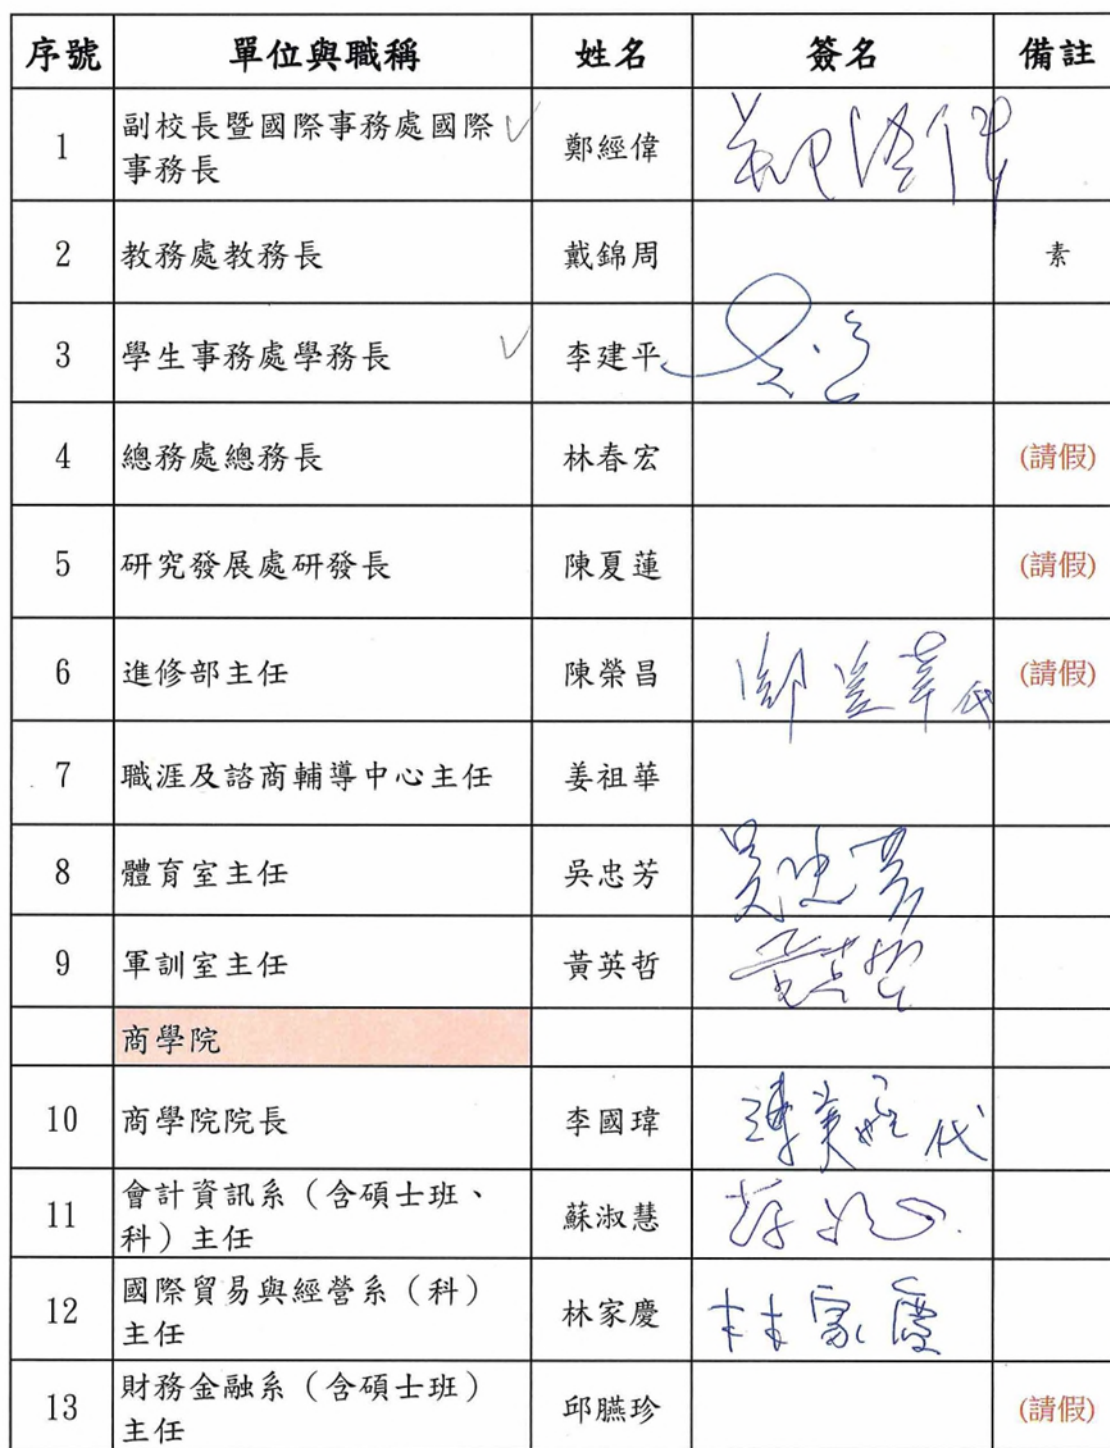 序號 單位與職稱 姓名 簽名 備註
1 副校長暨國際事務處國際 鄭經偉 鄭經偉
事務長
2 教務處教務長 戴錦周 素
3 學生事務處學務長 李建平
4 總務處總務長 林春宏 (請假)
5 研究發展處研發長 陳夏蓮 (請假)
6 進修部主任 陳榮昌 代 (請假)
7 職涯及諮商輔導中心主任 姜祖華
8 體育室主任 吳忠芳 吳忠芳
9 軍訓室主任 黃英哲 黃英哲
商學院
10 商學院院長 李國瑋 代
11 會計資訊系（含碩士班、 蘇淑慧
科）主任
12 國際貿易與經營系（科） 林家慶 林家慶
主任
13 財務金融系（含碩士班） 邱臙珍 (請假)
主任